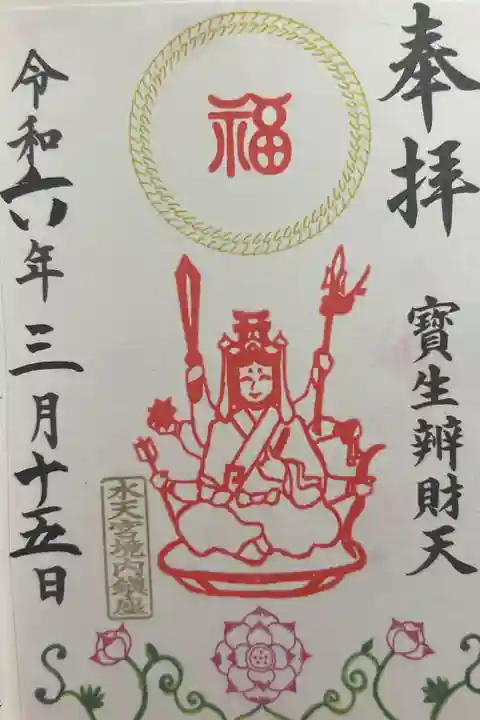 奉拝
寶生辨財天
福
水天宮境内鎮座
令和六年三月十五日